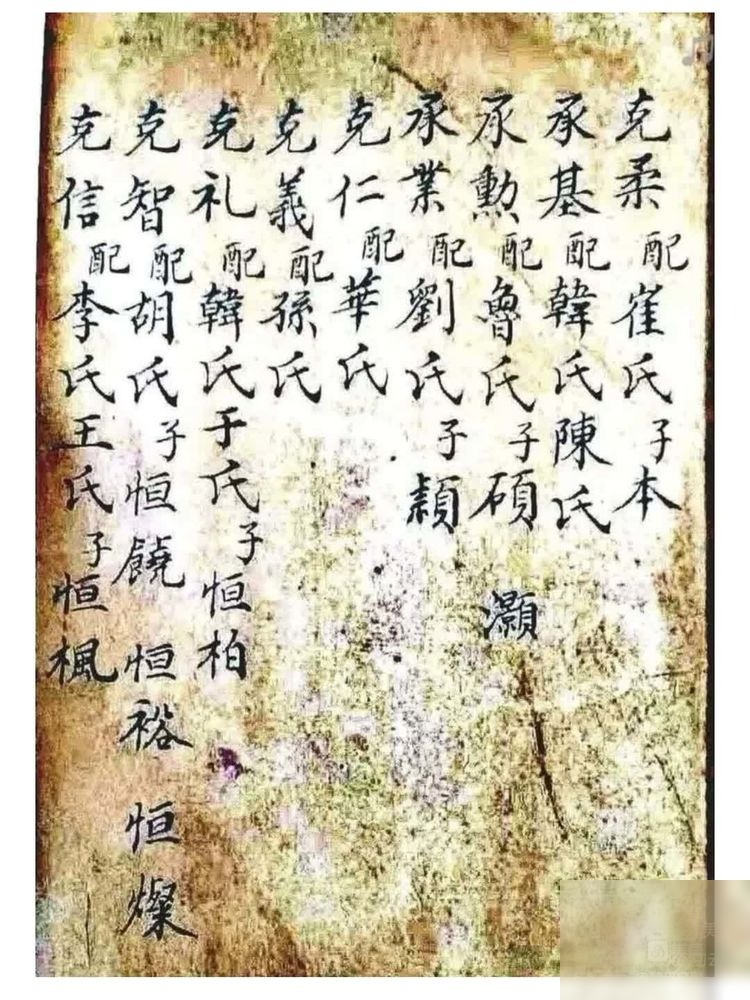 克柔配崔氏子本
承基配韓氏陳氏
承勲配魯氏子碩灝
承業配劉氏子穎
克仁配華氏
克義配孫氏
克礼配韓氏于氏子恒柏
克智配胡氏子恒饒恒裕恒燦
克信配李氏王氏子恒楓